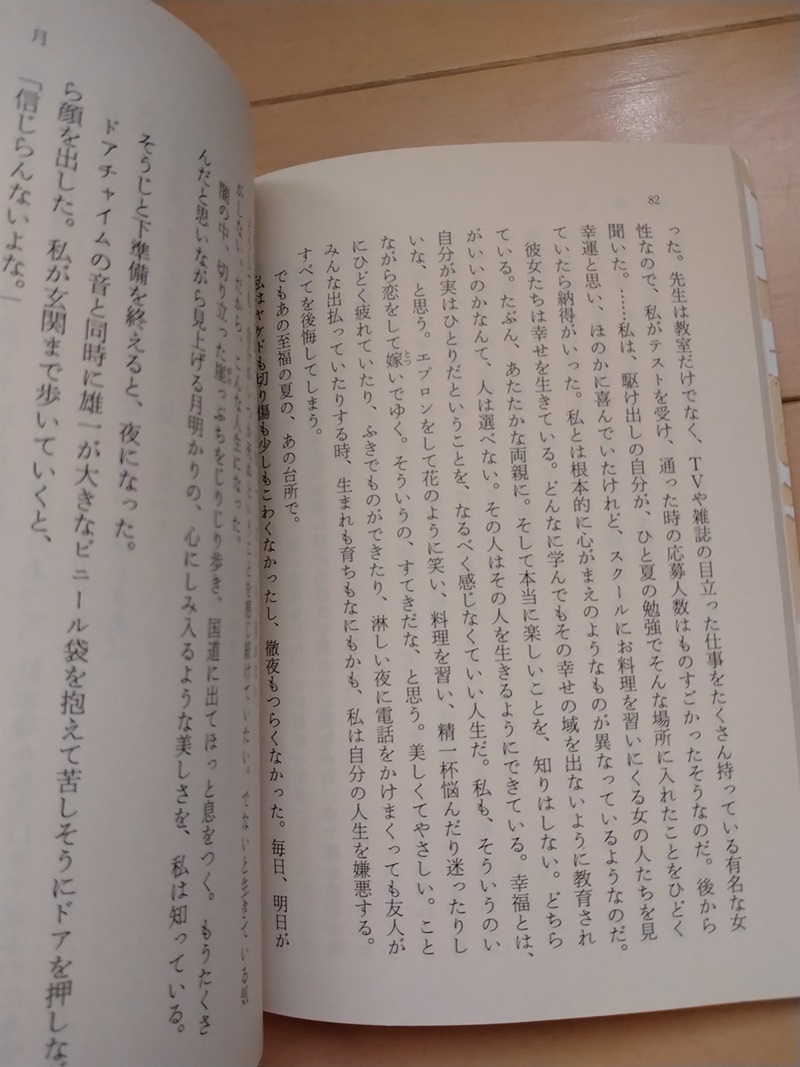 82
った。先生は教室だけでなく、TVや雑誌の目立った仕事をたくさん持っている有名な女
性なので、私がテストを受け、通った時の応募人数はものすごかったそうなのだ。後から
聞いた。……私は、駆け出しの自分が、ひと夏の勉強でそんな場所に入れたことをひどく
幸運と思い、ほのかに喜んでいたけれど、スクールにお料理を習いにくる女の人たちを見
ていたら納得がいった。私とは根本的に心がまえのようなものが異なっているようなのだ。
彼女たちは幸せを生きている。どんなに学んでもその幸せの域を出ないように教育され
ている。たぶん、あたたかな両親に。そして本当に楽しいことを、知りはしない。どちら
がいいのかなんて、人は選べない。その人はその人を生きるようにできている。幸福とは、
自分が実はひとりだということを、なるべく感じなくていい人生だ。私も、そういうのい
いな、と思う。エプロンをして花のように笑い、料理を習い、精一杯悩んだり迷ったりし
ながら恋をして嫁いでゆく。そういうの、すてきだな、と思う。美しくてやさしい。こと
にひどく疲れていたり、ふきでものができたり、淋しい夜に電話をかけまくっても友人が
みんな出払っていたりする時、生まれも育ちもなにもかも、私は自分の人生を嫌悪する。
すべてを後悔してしまう。
でもあの至福の夏の、あの台所で。
私はヤケドも切り傷も少しもこわくなかったし、徹夜もつらくなかった。毎日、明日が
こんな人生になった。
切り立った崖っぷちをじりじり歩き、国道に出てほっと息をつく。もうたくさ
んだと思いながら見上げる月明かりの、心にしみ入るような美しさを、私は知っている。
そうじと下準備を終えると、夜になった。
ドアチャイムの音と同時に雄一が大きなビニール袋を抱えて苦しそうにドアを押しな
ら顔を出した。私が玄関まで歩いていくと、
「信じらんないよな。」
月